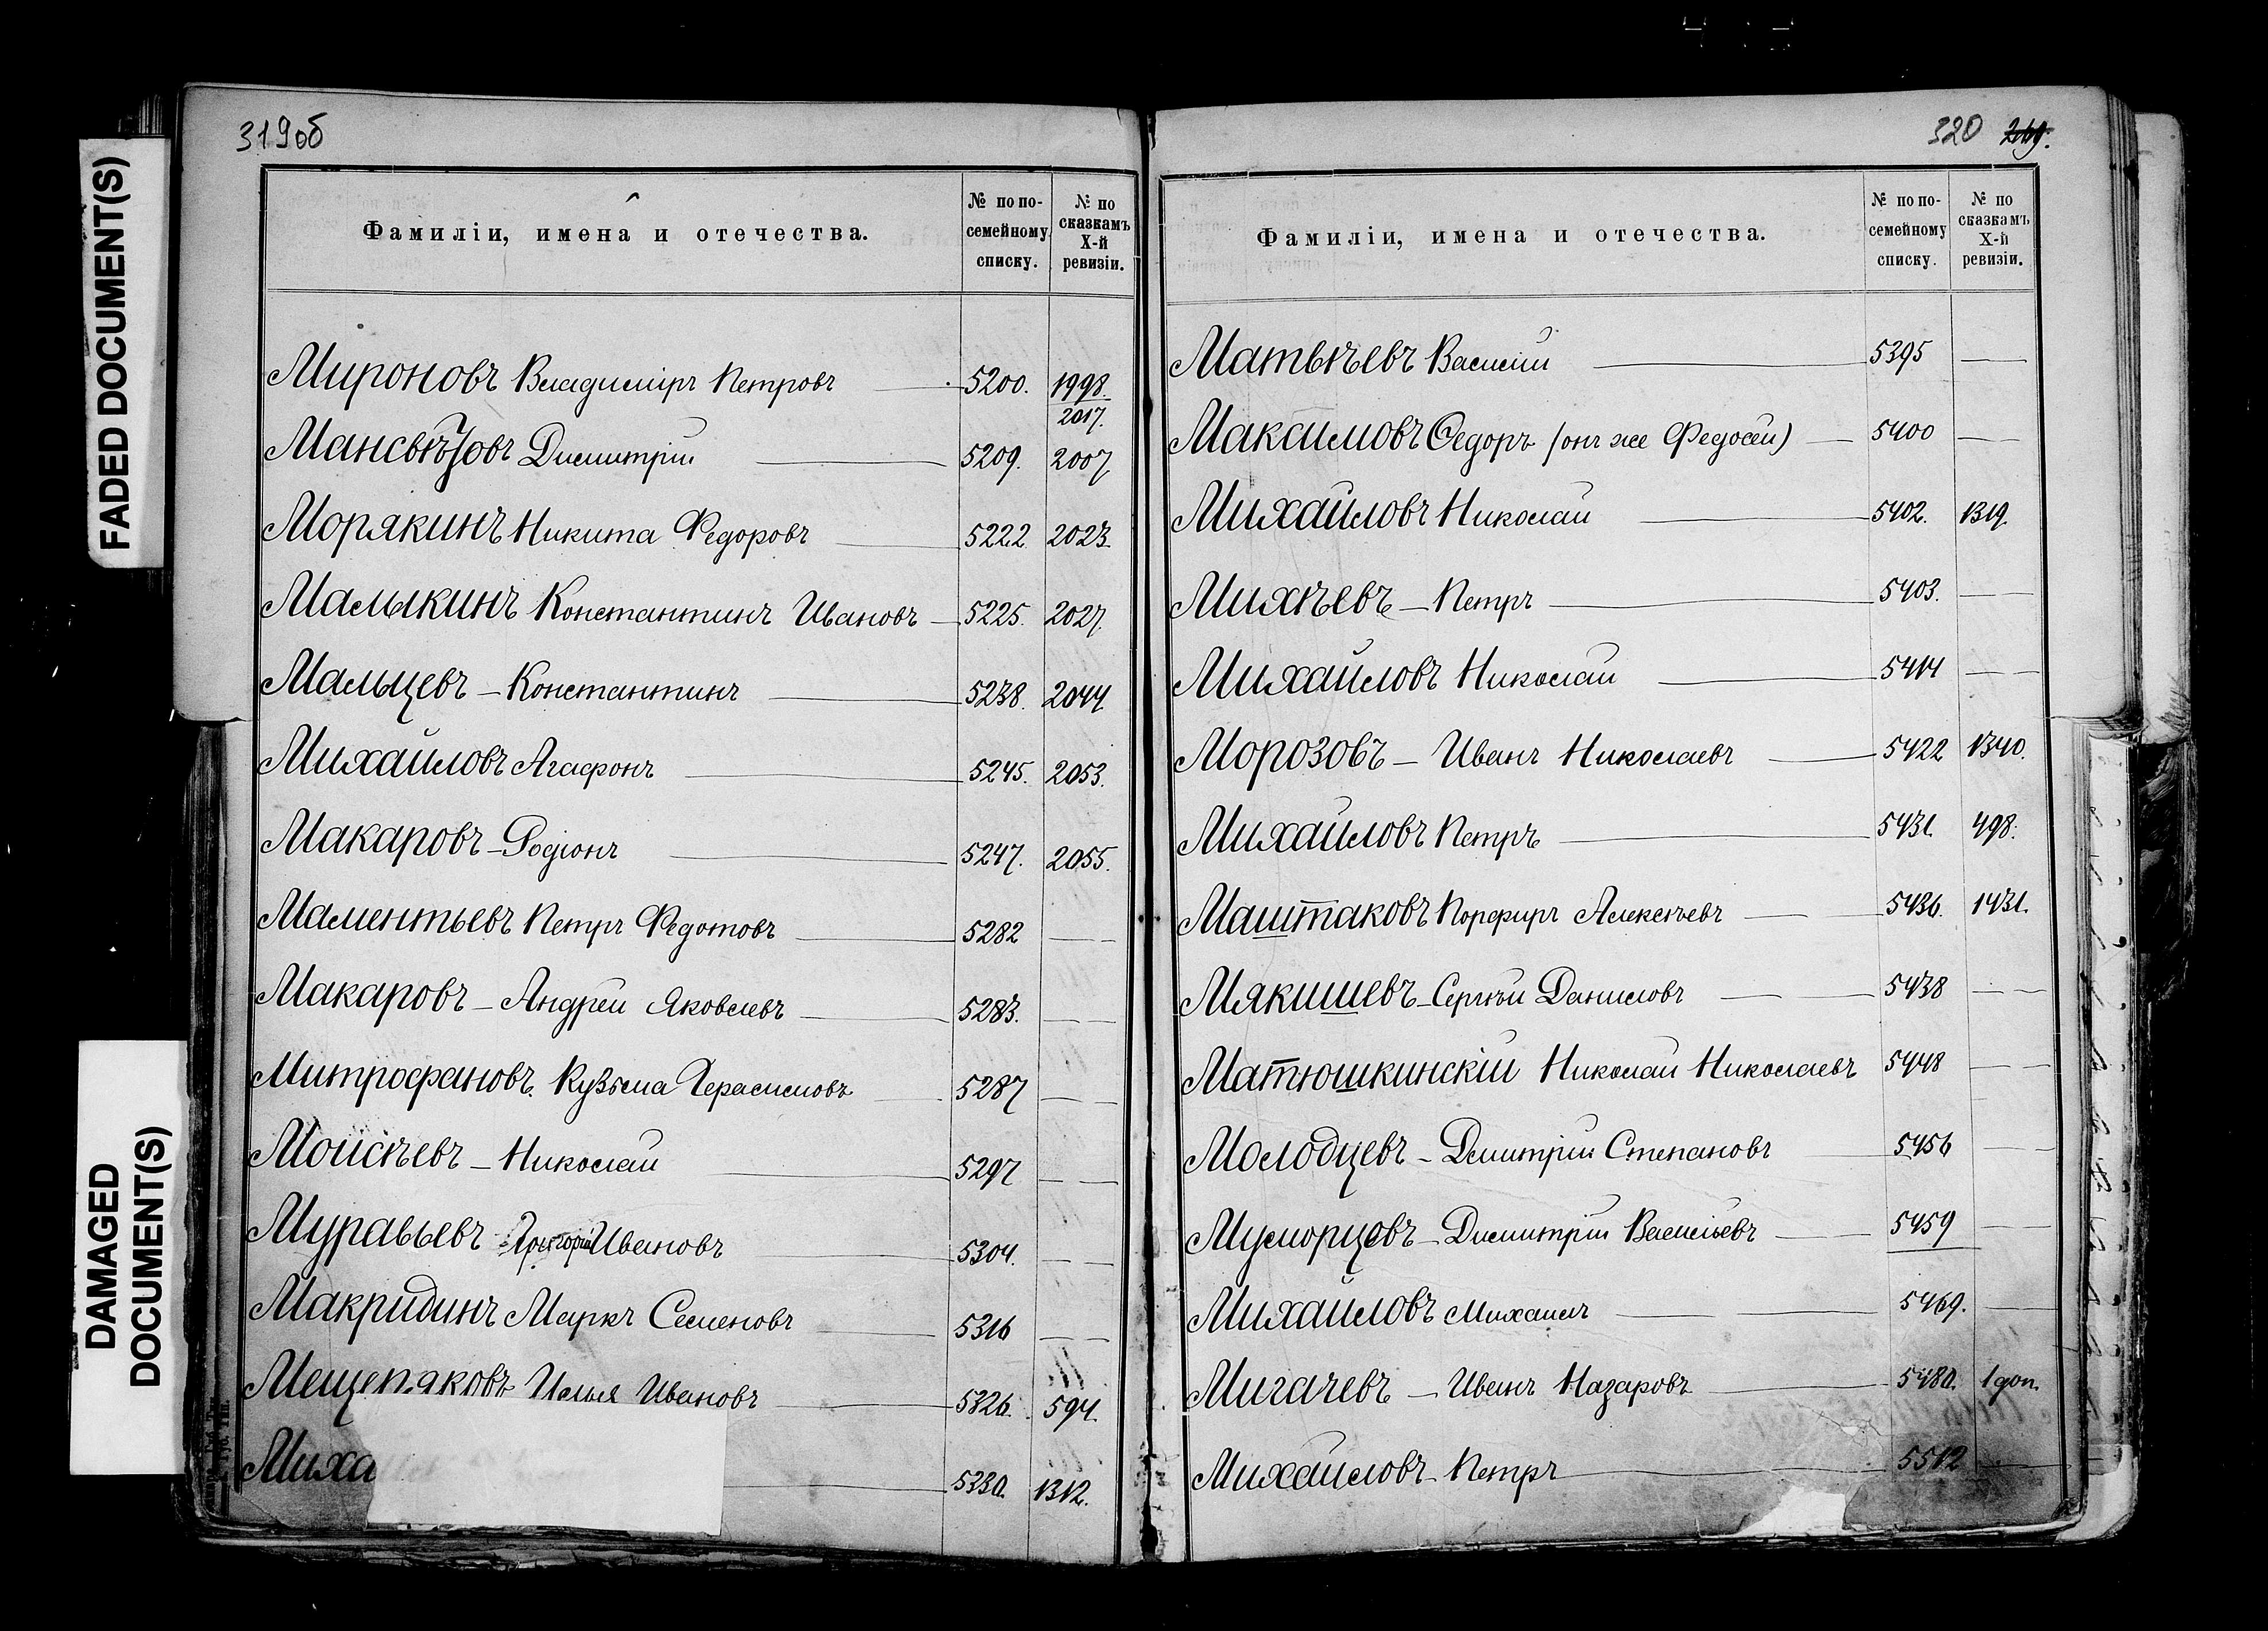 FADED DOCUMENT(S)
DAMAGED
DOCUMENT(S)
319об
Фамиліи, имена и отечества.
№ по по-
семейному
списку.
№ по
сказкамъ
X-й
ревизіи.
Мироновъ Владиміръ Петровъ 5200. 1998.
2017.
Мансвѣтовъ Димитрій 5209. 2007
Морякинъ Никита Федоровъ 5222 2023.
Малыкинъ Константинъ Ивановъ 5225. 2027.
Мальцевъ – Константинъ 5238. 2044
Михайловъ Агафонъ 5245. 2053.
Макаровъ – Родіонъ 5247. 2055.
Маментьевъ Петръ Федотовъ 5282
Макаровъ – Андрей Яковлевъ 5283.
Митрофановъ. Кузьма Герасимовъ 5287
Моисѣевъ – Николай 5297
Муравьевъ Григорій Ивановъ 5304.
Макридинъ Маркъ Семеновъ 5316
Мещеряковъ Илья Ивановъ 5326. 594.
Миха 5330. 1312.
320 269.
Фамиліи, имена и отечества.
№ по по-
семейному
списку.
№ по
сказкамъ
X-й
ревизіи.
Матвѣевъ Василій 5395
Максимовъ Федоръ (онъ же Федосѣй) 5400
Михайловъ Николай 5402. 1319.
Михѣевъ – Петръ 5403.
Михайловъ Николай 5414
Морозовъ – Иванъ Николаевъ 5422 1340.
Михайловъ Петръ 5431. 498.
Маштаковъ Порфиръ Алексѣевъ 5436. 1431.
Мякишевъ – Сергѣй Даниловъ 5438
Матюшкинскій Николай Николаевъ 5448
Молодцевъ – Дмитрій Степановъ 5456
Муморцовъ – Димитрій Васильевъ 5459
Михайловъ Михаилъ 5469.
Мигачевъ – Иванъ Назаровъ 5480. 1 доп.
Михайловъ – Петръ 5512